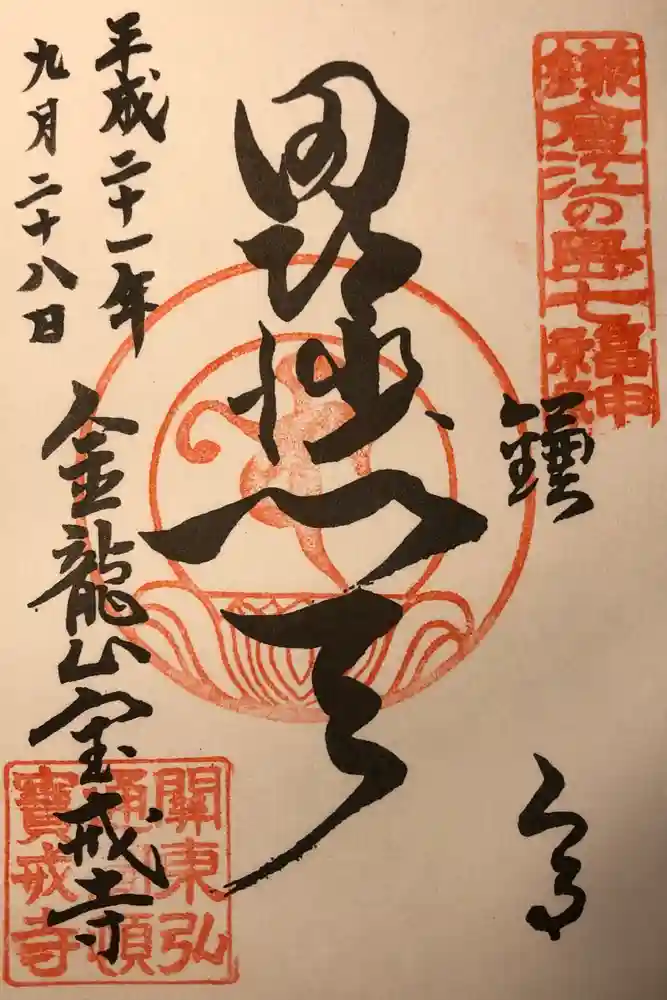 鎌倉江の島七福神
鎌倉
毘沙門天
平成二十一年
九月二十八日
金龍山宝戒寺
關東弘
通圓頓
寶戒寺